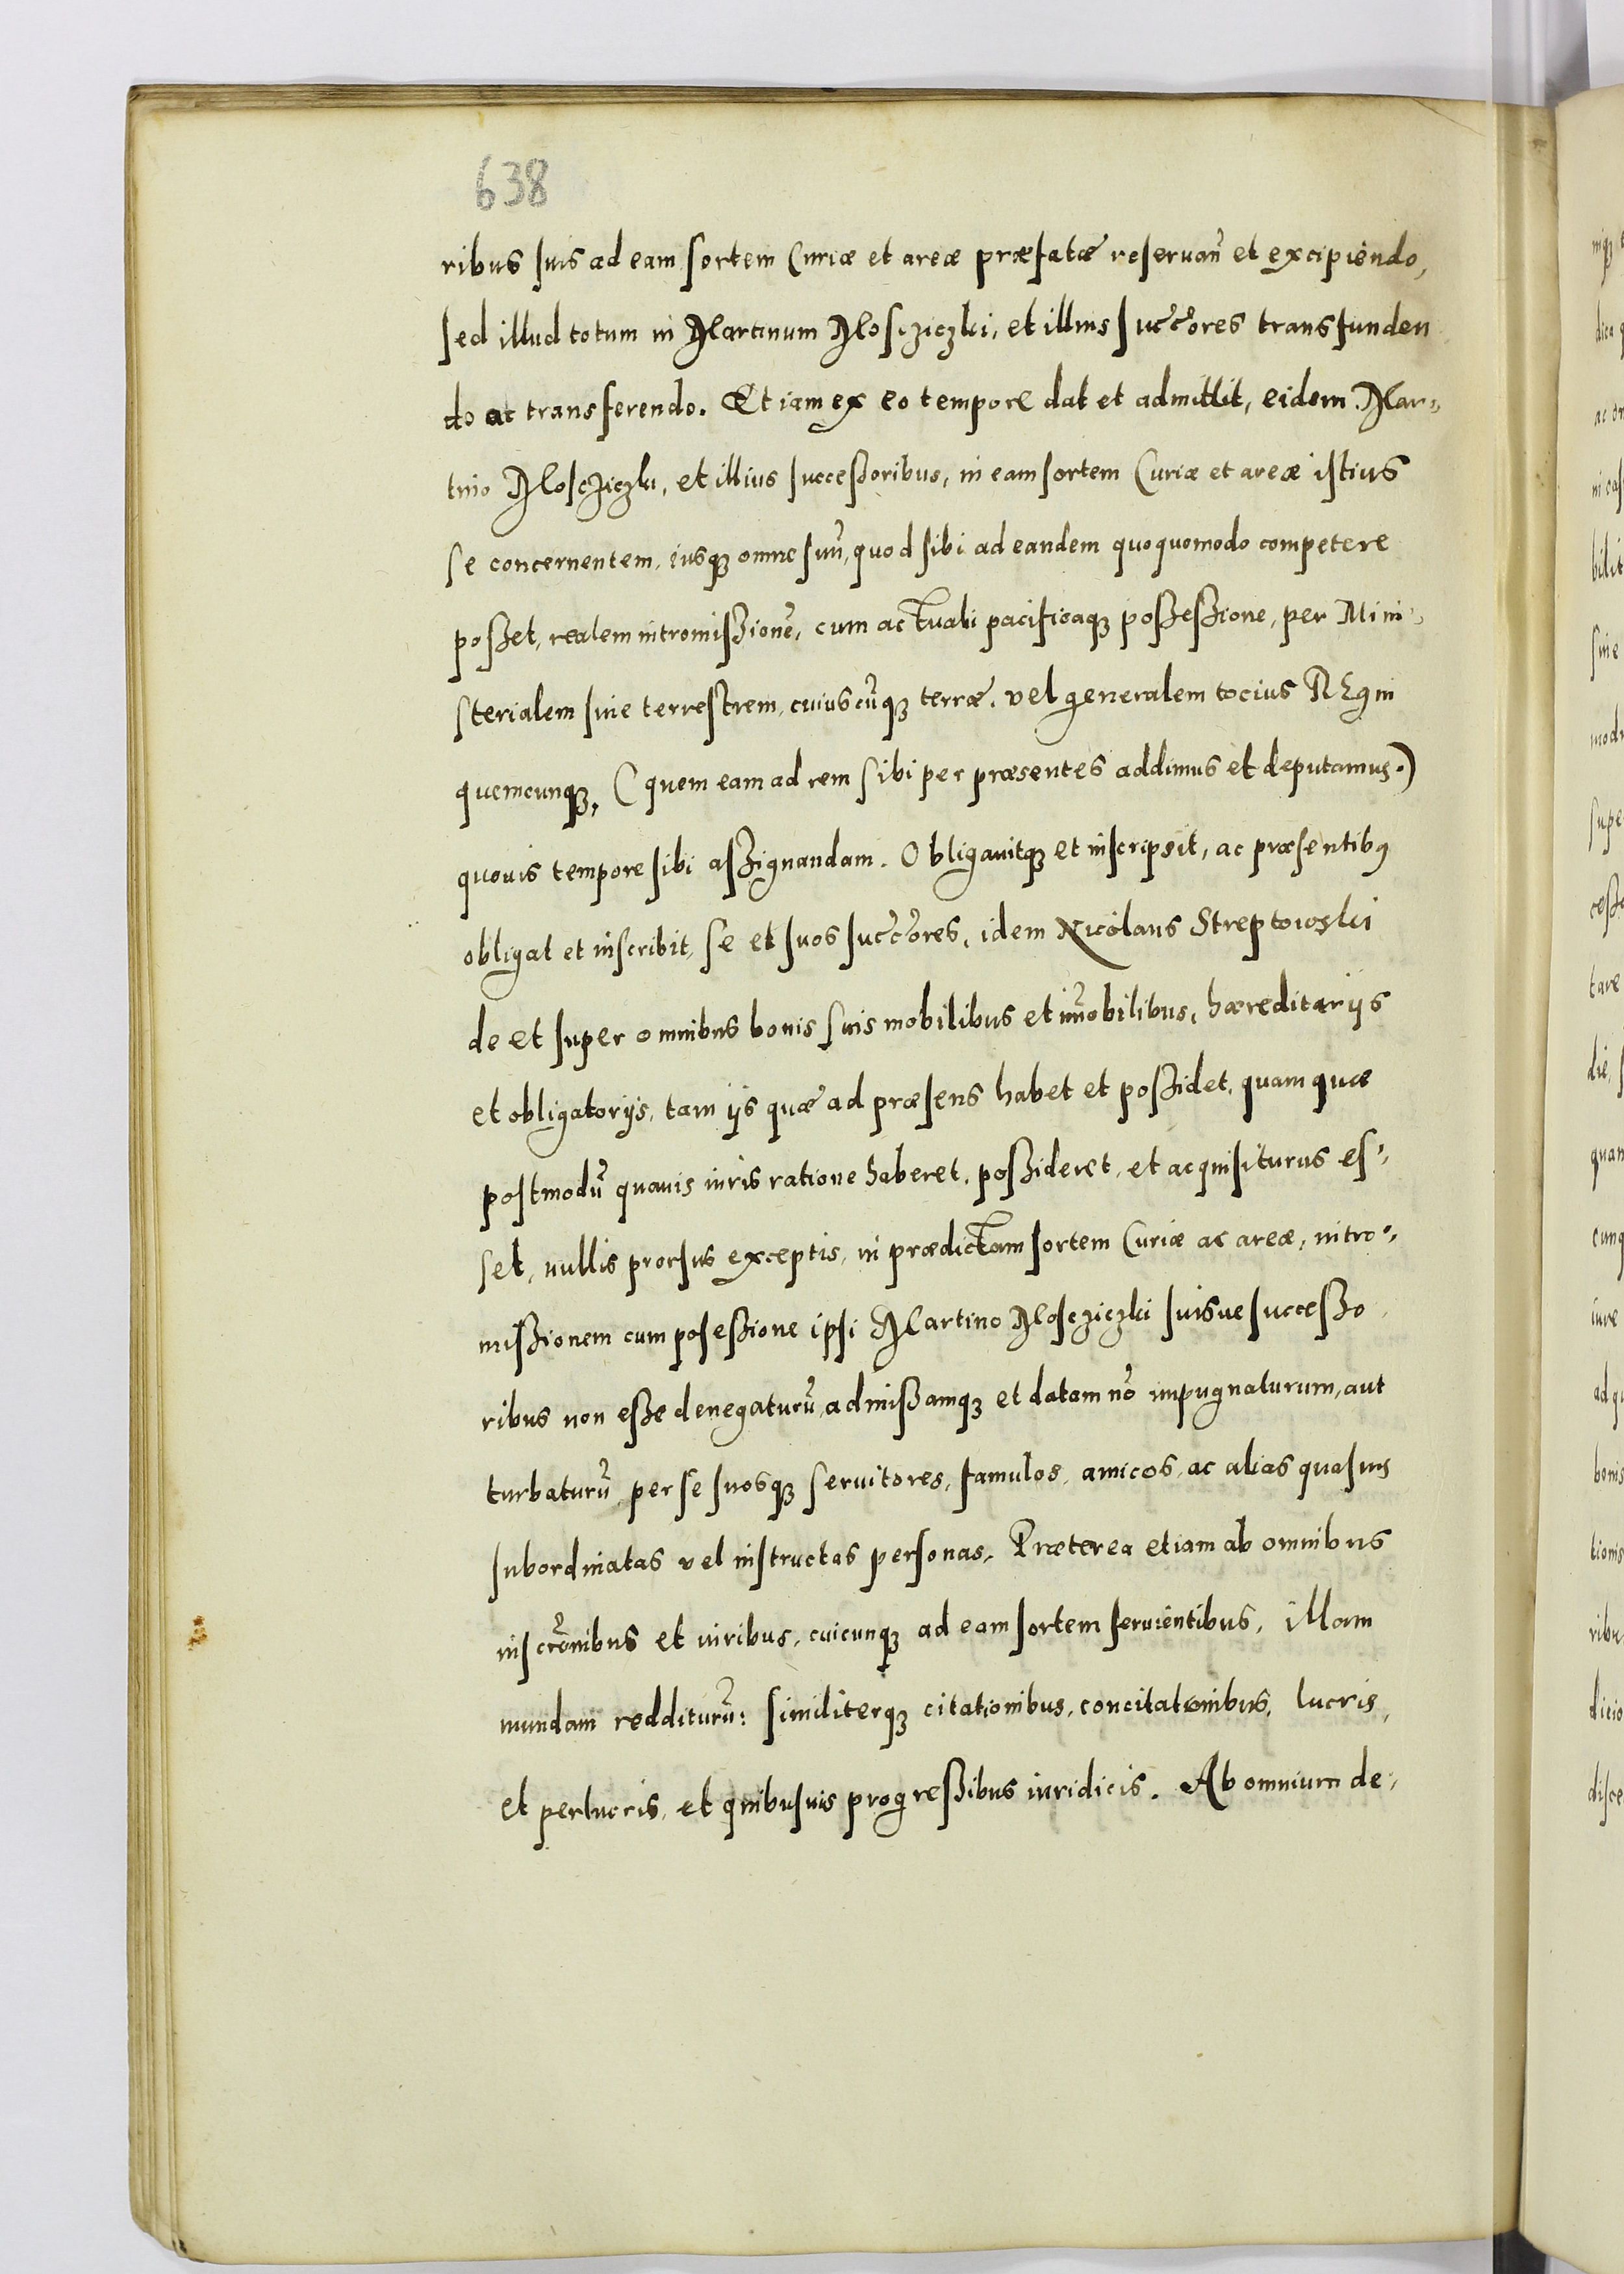 638
ribus suis ad eam sortem Curiæ et areæ præfatæ reseruan̄ et excipiendo,
sed illud totum in Martinum Mosczieczki, et illius succ̃ores transfunden
do ac transferendo. Et iam ex eo tempore dat et admittit, eidem Mar-
tino Mosczieczki, et illius succeßoribus, in eam sortem Curiæ et areæ istius
se concernentem, iusq3 omne suū, quod sibi ad eandem quoquomodo competere
poßet, realem intromißionē, cum actuali pacificaq3 poßeßione, per Mini-
sterialem siue terrestrem, cuiuscūq3 terræ, vel generalem tocius REgni
quemcunq3, (quem eam ad rem sibi per præsentes addimus et deputamus.)
quouis tempore sibi aßignandam. Obligauitq3 et inscripsit, ac præsentibꝰ
obligat et inscribit, se et suos succ̃ores, idem Nicolaus Streptowski
de et super omnibus bonis suis mobilibus et im̄obilibus, hæreditarijs
et obligatorijs, tam ijs quæ ad præsens habet et poßidet, quam quæ
postmodū quauis iuris ratione haberet, poßideret, et acquisiturus es-
set, nullis prorsus exceptis, in prædictam sortem Curiæ ac areæ, intro-
mißionem cum poseßione ipsi Martino Mosczieczki suisue succeßo
ribus non eße denegaturū, admißamq3 et datam nō impugnaturum, aut
turbaturū, per se suosq3 seruitores, famulos, amicos, ac alias quasuis
subordinatas vel instructas personas, Præterea etiam ab omnibus
inscr̄onibus et iuribus, cuicunq3 ad eam sortem seruientibus, illam
mundam redditurū: similiterq3 citationibus, concitationibus, lucris,
et perlucris, et quibusuis progreßibus iuridicis. Ab omnium de-